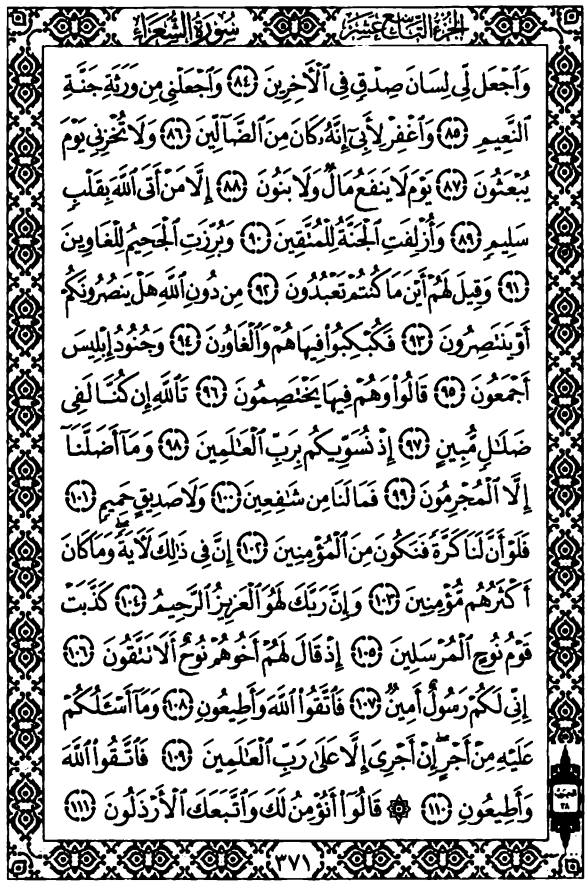 سُورَةُ الشُّعَرَاءِ الجُزءُ التَّاسِعَ عَشَرَ
وَٱجۡعَل لِّي لِسَانَ صِدۡقٖ فِي ٱلۡأٓخِرِينَ ٨٤ وَٱجۡعَلۡنِي مِن وَرَثَةِ جَنَّةِ
ٱلنَّعِيمِ ٨٥ وَٱغۡفِرۡ لِأَبِيٓ إِنَّهُۥ كَانَ مِنَ ٱلضَّآلِّينَ ٨٦ وَلَا تُخۡزِنِي يَوۡمَ
يُبۡعَثُونَ ٨٧ يَوۡمَ لَا يَنفَعُ مَالٞ وَلَا بَنُونَ ٨٨ إِلَّا مَنۡ أَتَى ٱللَّهَ بِقَلۡبٖ
سَلِيمٖ ٨٩ وَأُزۡلِفَتِ ٱلۡجَنَّةُ لِلۡمُتَّقِينَ ٩٠ وَبُرِّزَتِ ٱلۡجَحِيمُ لِلۡغَاوِينَ
٩١ وَقِيلَ لَهُمۡ أَيۡنَ مَا كُنتُمۡ تَعۡبُدُونَ ٩٢ مِن دُونِ ٱللَّهِ هَلۡ يَنصُرُونَكُمۡ
أَوۡ يَنتَصِرُونَ ٩٣ فَكُبۡكِبُواْ فِيهَا هُمۡ وَٱلۡغَاوُۥنَ ٩٤ وَجُنُودُ إِبۡلِيسَ
أَجۡمَعُونَ ٩٥ قَالُواْ وَهُمۡ فِيهَا يَخۡتَصِمُونَ ٩٦ تَٱللَّهِ إِن كُنَّا لَفِي
ضَلَٰلٖ مُّبِينٍ ٩٧ إِذۡ نُسَوِّيكُم بِرَبِّ ٱلۡعَٰلَمِينَ ٩٨ وَمَآ أَضَلَّنَآ
إِلَّا ٱلۡمُجۡرِمُونَ ٩٩ فَمَا لَنَا مِن شَٰفِعِينَ ١٠٠ وَلَا صَدِيقٍ حَمِيمٖ ١٠١
فَلَوۡ أَنَّ لَنَا كَرَّةٗ فَنَكُونَ مِنَ ٱلۡمُؤۡمِنِينَ ١٠٢ إِنَّ فِي ذَٰلِكَ لَأٓيَةٗۖ وَمَا كَانَ
أَكۡثَرُهُم مُّؤۡمِنِينَ ١٠٣ وَإِنَّ رَبَّكَ لَهُوَ ٱلۡعَزِيزُ ٱلرَّحِيمُ ١٠٤ كَذَّبَتۡ
قَوۡمُ نُوحٍ ٱلۡمُرۡسَلِينَ ١٠٥ إِذۡ قَالَ لَهُمۡ أَخُوهُمۡ نُوحٌ أَلَا تَتَّقُونَ ١٠٦
إِنِّي لَكُمۡ رَسُولٌ أَمِينٞ ١٠٧ فَٱتَّقُواْ ٱللَّهَ وَأَطِيعُونِ ١٠٨ وَمَآ أَسۡـَٔلُكُمۡ
عَلَيۡهِ مِنۡ أَجۡرٍۖ إِنۡ أَجۡرِيَ إِلَّا عَلَىٰ رَبِّ ٱلۡعَٰلَمِينَ ١٠٩ فَٱتَّقُواْ ٱللَّهَ
وَأَطِيعُونِ ١١٠ ۞ قَالُوٓاْ أَنُؤۡمِنُ لَكَ وَٱتَّبَعَكَ ٱلۡأَرۡذَلُونَ ١١١
الحزب
٣٨
٣٧١